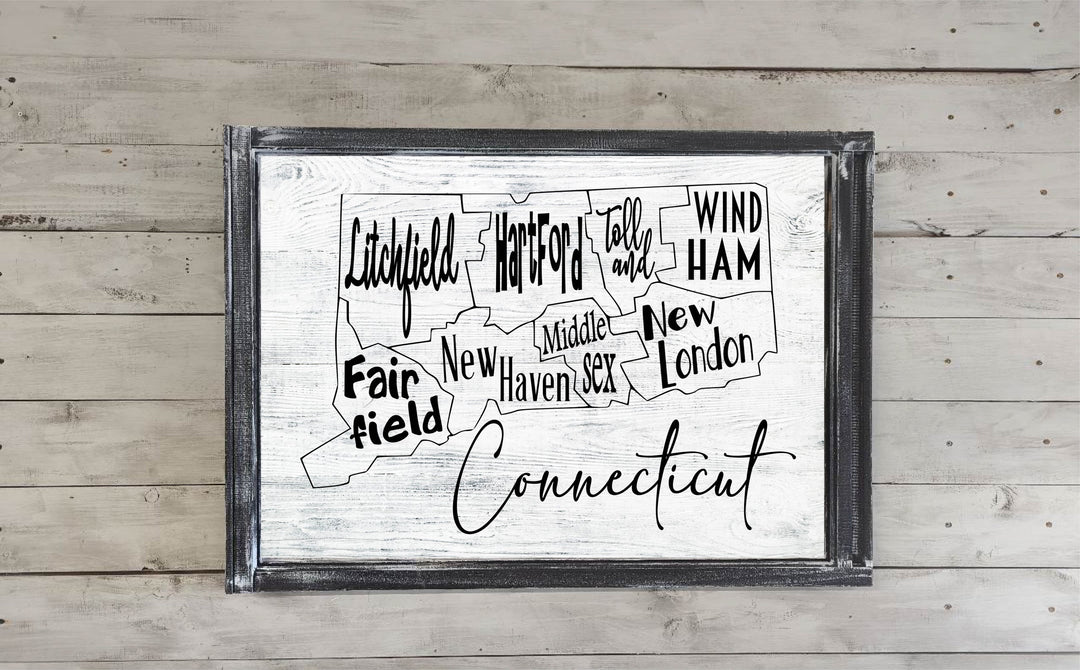 Litchfield
HartFord
Toll
and
WIND
HAM
Fair
field
New
Haven
Middle
sex
New
London
Connecticut